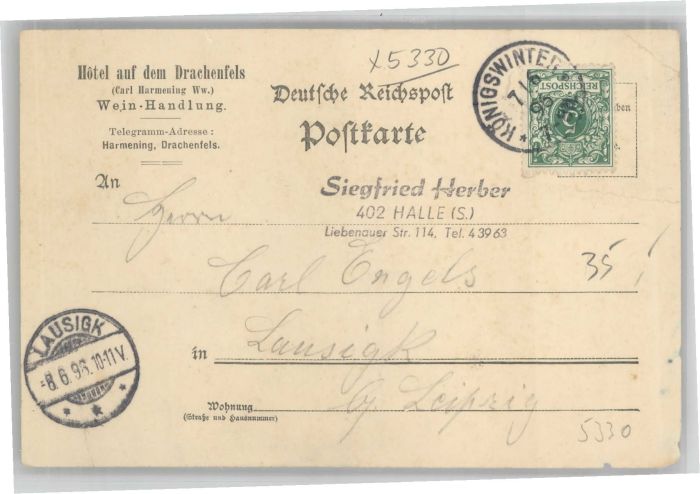 Hôtel auf dem Drachenfels
(Carl Harmening Ww.)
Wein-Handlung.
Telegramm-Adresse:
Harmening, Drachenfels.
x5330
Deutsche Reichspost
Postkarte
KÖNIGSWINTER
7/6
96
REICHSPOST
5
ben
e.
An
Siegfried Herber
402 HALLE (S.)
Liebenauer Str. 114, Tel. 43963
Herrn
Carl Engels
35
LAUSIGK
-8.6.96. 10-11V.
in Lausigk
by Leipzig
Wohnung
(Straße und Hausnummer)
5330